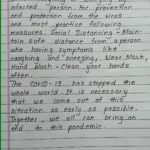 infected person. For prevention
and protection from the virus
one must practice following
measures: Social Distancing - Main-
tain safe distance from a person
who having symptoms like
coughing and sneezing, Wear Mask,
Hand Wash - Clean your hands
often.
The COVID-19 has stopped the
whole world. It is necessary
that we come out of this
situation as early as possible.
Together, we all can bring an
end to this pandemic.